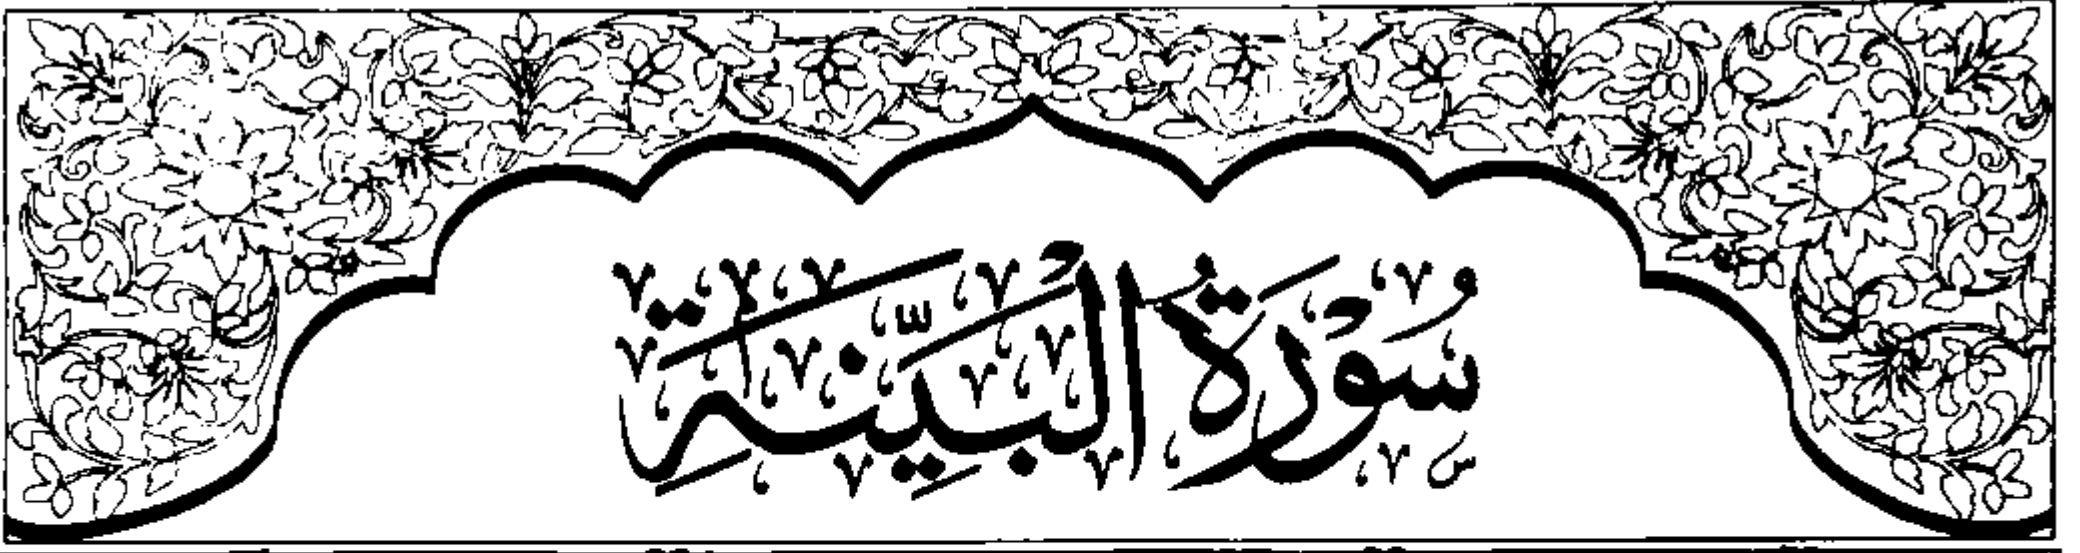 سُوْرَةُ الْبَيِّنَةِ